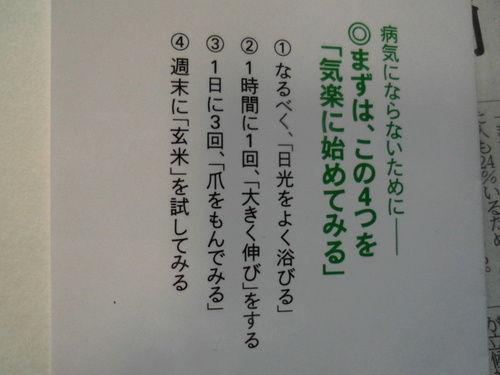 病気にならないために——
◎まずは、この4つを
「気楽に始めてみる」
① なるべく、「日光をよく浴びる」
② 1時間に1回、「大きく伸び」をする
③ 1日に3回、「爪をもんでみる」
④ 週末に「玄米」を試してみる